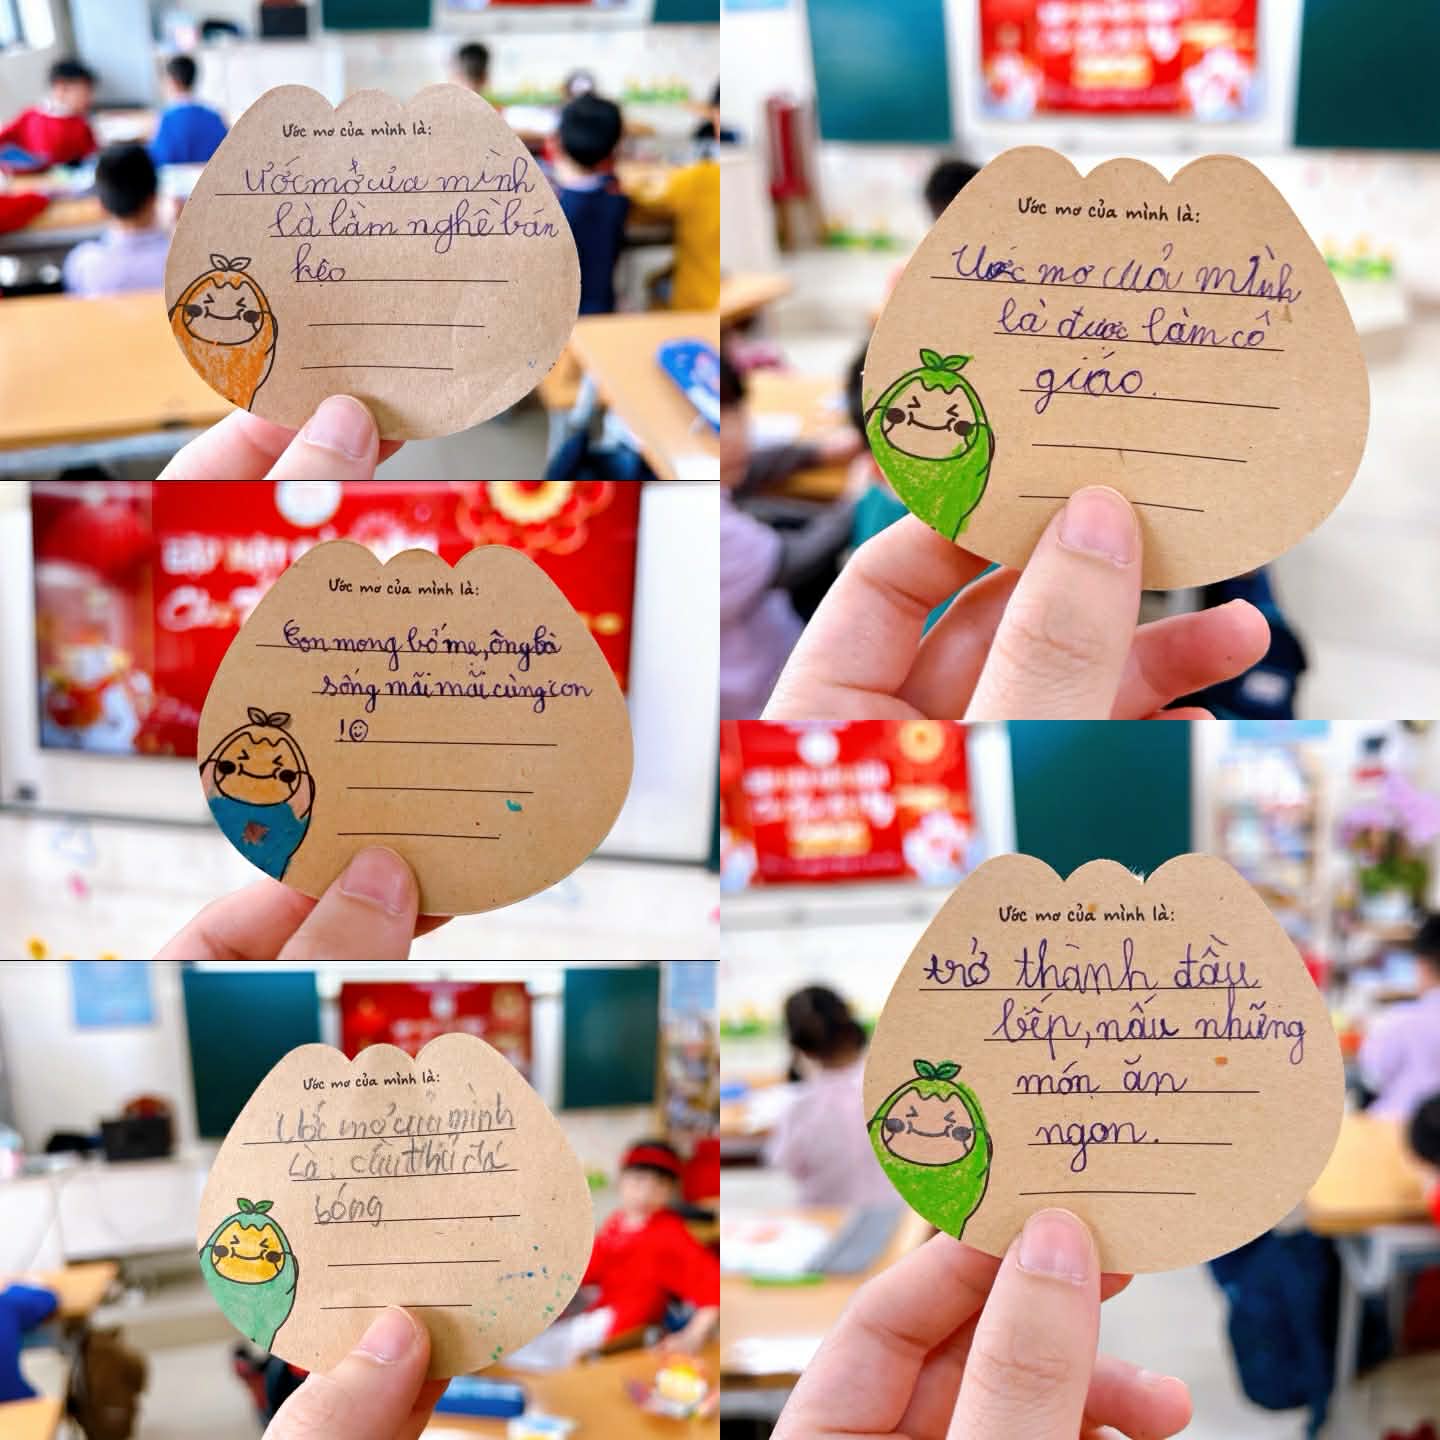 Ước mơ của mình là:
Ước mở của mình
là làm nghề bán
kẹo
Ước mơ của mình là:
Ước mơ của mình
là được làm cô
giáo.
Ước mơ của mình là:
Con mong bố mẹ, ông bà
sống mãi mãi cùng con
!☺
Ước mơ của mình là:
trở thành đầu
bếp, nấu những
món ăn
ngon.
Ước mơ của mình là:
Ước mơ của mình
Là: cầu thủ đá
bóng